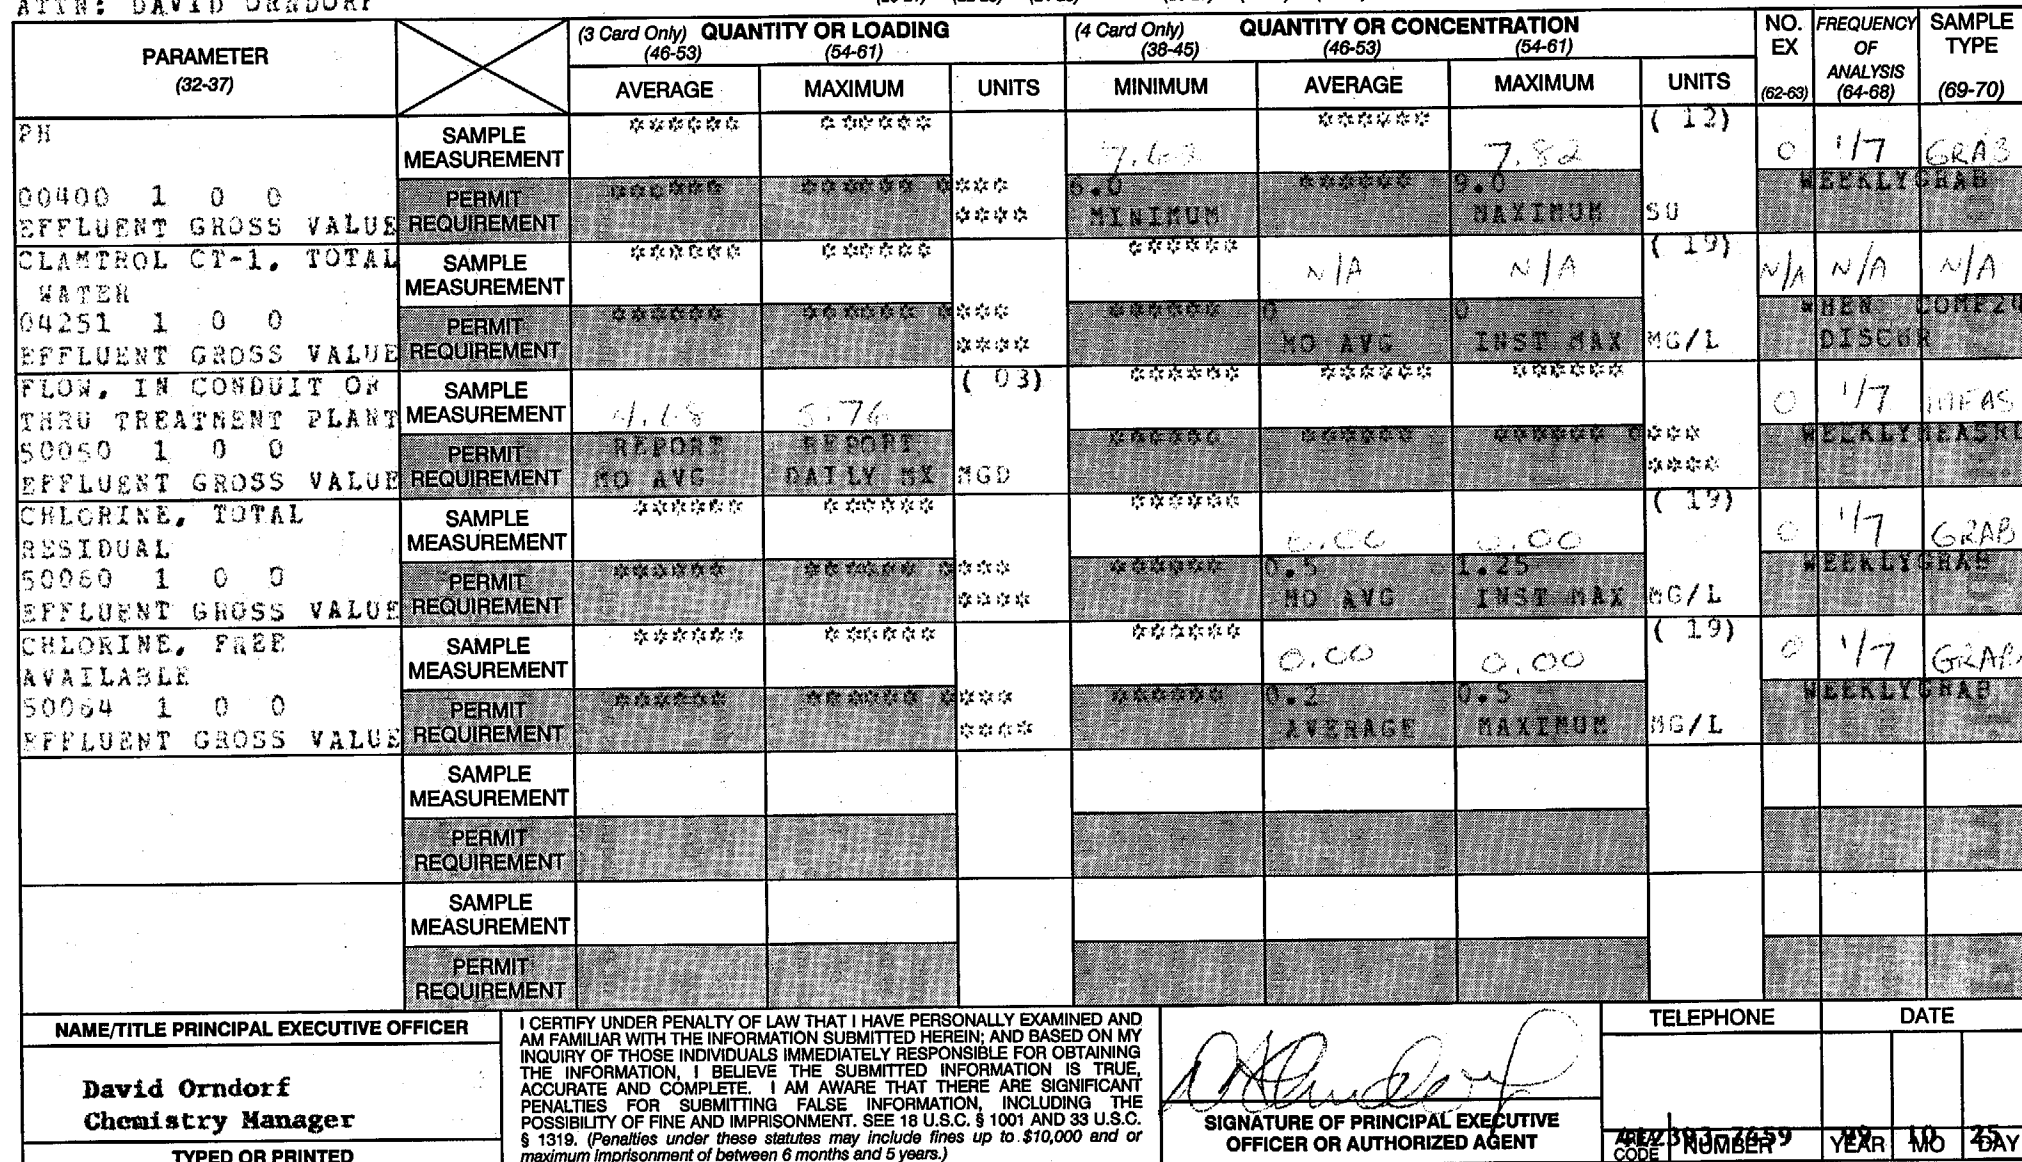 ATTN: DAVID ORNDORF
PARAMETER
(32-37)
(3 Card Only) QUANTITY OR LOADING
(46-53) (54-61)
AVERAGE MAXIMUM UNITS
(4 Card Only) QUANTITY OR CONCENTRATION
(38-45) (46-53) (54-61)
MINIMUM AVERAGE MAXIMUM UNITS
NO. EX
(62-63)
FREQUENCY OF ANALYSIS
(64-68)
SAMPLE TYPE
(69-70)
PH
00400 1 0 0
EFFLUENT GROSS VALUE
SAMPLE MEASUREMENT
****** ****** ****** ( 12)
7.82 0 1/7 GRAB
PERMIT REQUIREMENT
****** ****** **** 6.0 ****** 9.0 WEEKLY GRAB
**** MINIMUM MAXIMUM SU
CLAMTROL CT-1, TOTAL
WATER
04251 1 0 0
EFFLUENT GROSS VALUE
SAMPLE MEASUREMENT
****** ****** ****** ( 19)
N/A N/A N/A N/A N/A
PERMIT REQUIREMENT
****** ****** **** ****** 0 0 WHEN COMP24
**** MO AVG INST MAX MG/L DISCHR
FLOW, IN CONDUIT OR
THRU TREATMENT PLANT
50050 1 0 0
EFFLUENT GROSS VALUE
SAMPLE MEASUREMENT
( 03) ****** ****** ******
5.76 0 1/7 MEAS
PERMIT REQUIREMENT
REPORT REPORT ****** ****** ****** **** WEEKLY MEASRD
MO AVG DAILY MX MGD ****
CHLORINE, TOTAL
RESIDUAL
50060 1 0 0
EFFLUENT GROSS VALUE
SAMPLE MEASUREMENT
****** ****** ****** ( 19)
0.00 0.00 0 1/7 GRAB
PERMIT REQUIREMENT
****** ****** **** ****** 0.5 1.25 WEEKLY GRAB
**** MO AVG INST MAX MG/L
CHLORINE, FREE
AVAILABLE
50064 1 0 0
EFFLUENT GROSS VALUE
SAMPLE MEASUREMENT
****** ****** ****** ( 19)
0.00 0.00 0 1/7 GRAB
PERMIT REQUIREMENT
****** ****** **** ****** 0.2 0.5 WEEKLY GRAB
**** AVERAGE MAXIMUM MG/L
SAMPLE MEASUREMENT
PERMIT REQUIREMENT
SAMPLE MEASUREMENT
PERMIT REQUIREMENT
NAME/TITLE PRINCIPAL EXECUTIVE OFFICER
David Orndorf
Chemistry Manager
TYPED OR PRINTED
I CERTIFY UNDER PENALTY OF LAW THAT I HAVE PERSONALLY EXAMINED AND
AM FAMILIAR WITH THE INFORMATION SUBMITTED HEREIN; AND BASED ON MY
INQUIRY OF THOSE INDIVIDUALS IMMEDIATELY RESPONSIBLE FOR OBTAINING
THE INFORMATION, I BELIEVE THE SUBMITTED INFORMATION IS TRUE,
ACCURATE AND COMPLETE. I AM AWARE THAT THERE ARE SIGNIFICANT
PENALTIES FOR SUBMITTING FALSE INFORMATION, INCLUDING THE
POSSIBILITY OF FINE AND IMPRISONMENT. SEE 18 U.S.C. § 1001 AND 33 U.S.C.
§ 1319. (Penalties under these statutes may include fines up to $10,000 and or
maximum imprisonment of between 6 months and 5 years.)
SIGNATURE OF PRINCIPAL EXECUTIVE
OFFICER OR AUTHORIZED AGENT
TELEPHONE
412 393-7659
AREA CODE NUMBER
DATE
99 10 25
YEAR MO DAY